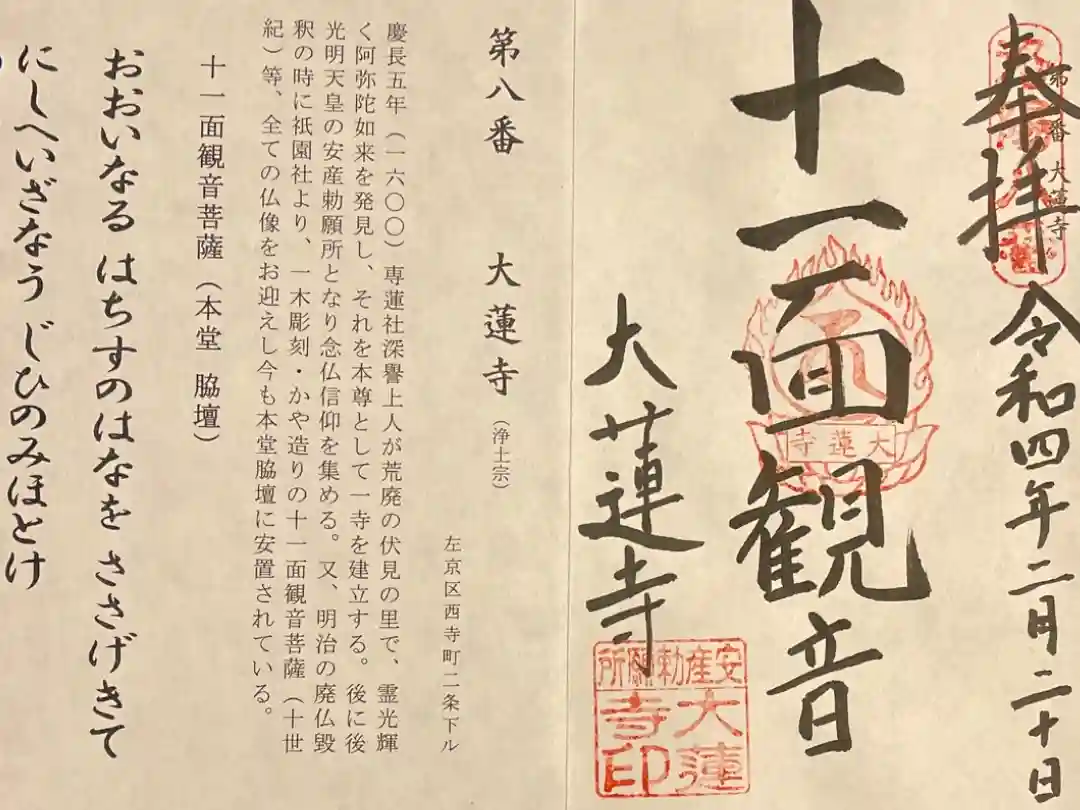 奉拝
第八番 大蓮寺
令和四年二月二十日
十一面観音
大蓮寺
大蓮寺
安産勅願所
大蓮寺印
第八番 大蓮寺(浄土宗)
左京区西寺町二条下ル
慶長五年(一六〇〇)専蓮社深譽上人が荒廃の伏見の里で、霊光輝
く阿弥陀如来を発見し、それを本尊として一寺を建立する。後に後
光明天皇の安産勅願所となり念仏信仰を集める。又、明治の廃仏毀
釈の時に祇園社より、一木彫刻・かや造りの十一面観音菩薩(十世
紀)等、全ての仏像をお迎えし今も本堂脇壇に安置されている。
十一面観音菩薩(本堂 脇壇)
おおいなる はちすのはなを ささげきて
にしへいざなう じひのみほとけ